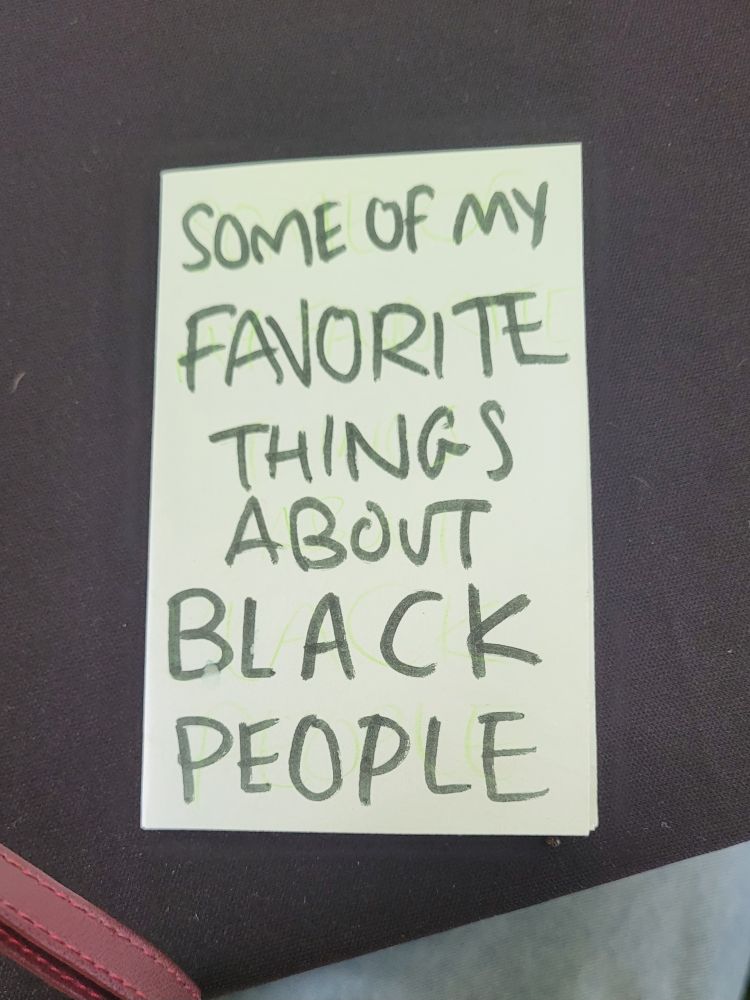 SOME OF MY
FAVORITE
THINGS
ABOUT
BLACK
PEOPLE